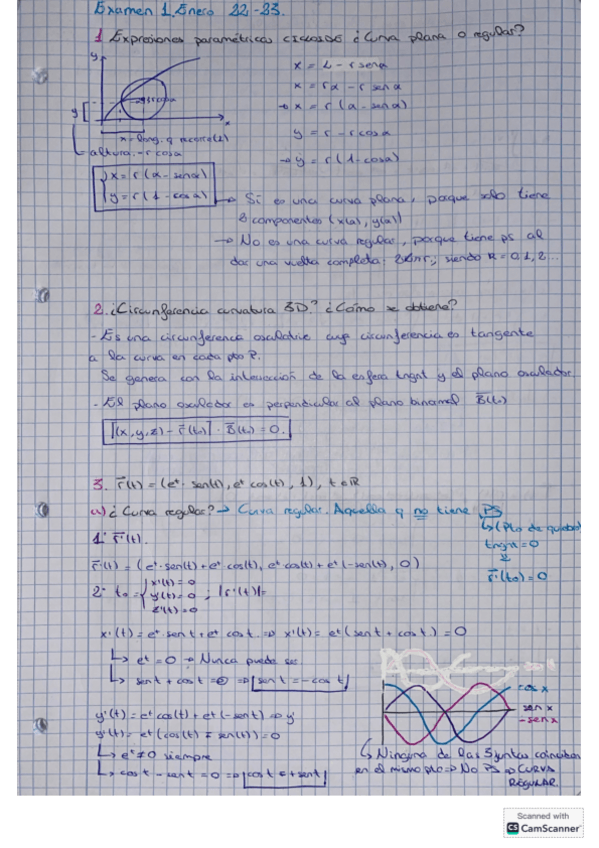 Examen 1. Enero 22-23.
1 Expresiones paramétricas CICLOIDE ¿Curva plana o regular?
y
x = L - r senα
x = rα - r senα
→ x = r (α - senα)
y
x
y = r - r cosα
x = long. q recorre (L)
altura - r cosα
→ y = r (1 - cosα)
x = r (α - senα)
y = r (1 - cosα)
→ Sí es una curva plana, porque solo tiene
2 componentes (x(α), y(α))
→ No es una curva regular, porque tiene ps al
dar una vuelta completa: 2kπr; siendo k = 0,1,2...
2. ¿Circunferencia curvatura 3D? ¿Cómo se obtiene?
- Es una circunferencia osculatriz cuya circunferencia es tangente
a la curva en cada pto P.
Se genera con la intersección de la esfera tngnt y el plano osculador
- El plano osculador es perpendicular al plano binormal B(t₀)
[(x,y,z) - r(t₀)] · B(t₀) = 0.
3. r(t) = (eᵗ · sen(t), eᵗ cos(t), 1), t ∈ ℝ
a) ¿Curva regular? → Curva regular. Aquella q no tiene PS
↳ (Pto de quiebro)
tngnt = 0
r'(t₀) = 0
1º r'(t).
r'(t) = (eᵗ · sen(t) + eᵗ cos(t), eᵗ cos(t) + eᵗ (-sen(t)), 0)
2º t₀ = { x'(t) = 0
y'(t) = 0 ; |r'(t)| =
z'(t) = 0
x'(t) = eᵗ · sen t + eᵗ cos t ⇒ x'(t) = eᵗ (sen t + cos t) = 0
↳ eᵗ = 0 → Nunca puede ser
↳ sen t + cos t = 0 ⇒ sen t = - cos t
cos x
sen x
- sen x
y'(t) = eᵗ cos(t) + eᵗ (-sen t) ⇒ y'
y'(t) = eᵗ (cos(t) - sen(t)) = 0
↳ eᵗ ≠ 0 siempre
↳ cos t - sen t = 0 ⇒ cos t = sen t
↳ Ninguna de las 3 juntas coinciden
en el mismo pto ⇒ No PS ⇒ CURVA
REGULAR.
Scanned with
CS CamScanner